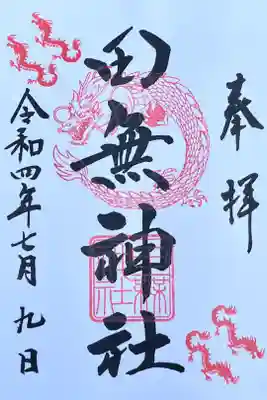 奉拝
田無神社
令和四年七月九日